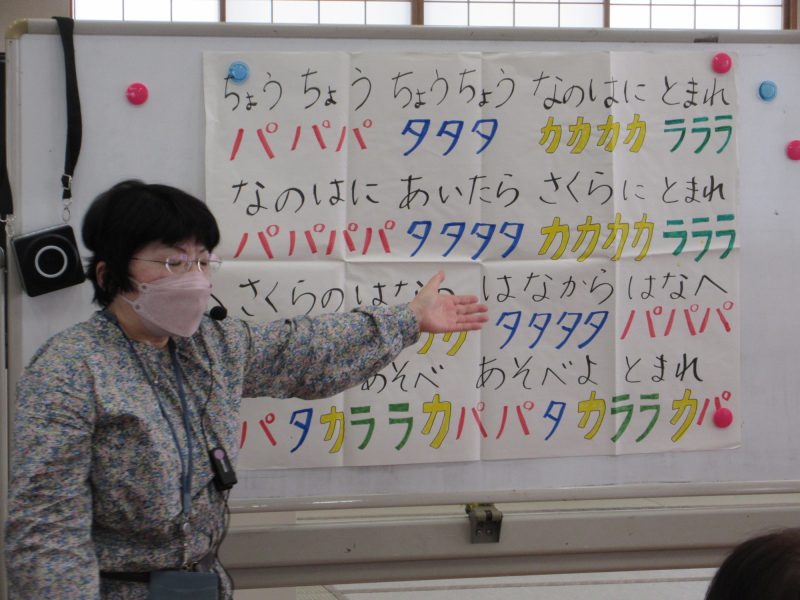 ちょう ちょう ちょうちょう なのはに とまれ
パパパ タタタ カカカカ ラララ
なのはに あいたら さくらに とまれ
パパパパ タタタタ カカカカ ラララ
さくらの はな はなから はなへ
カカ タタタタ パパパ
あそべ あそべよ とまれ
パタカララカパ パタカララカパ